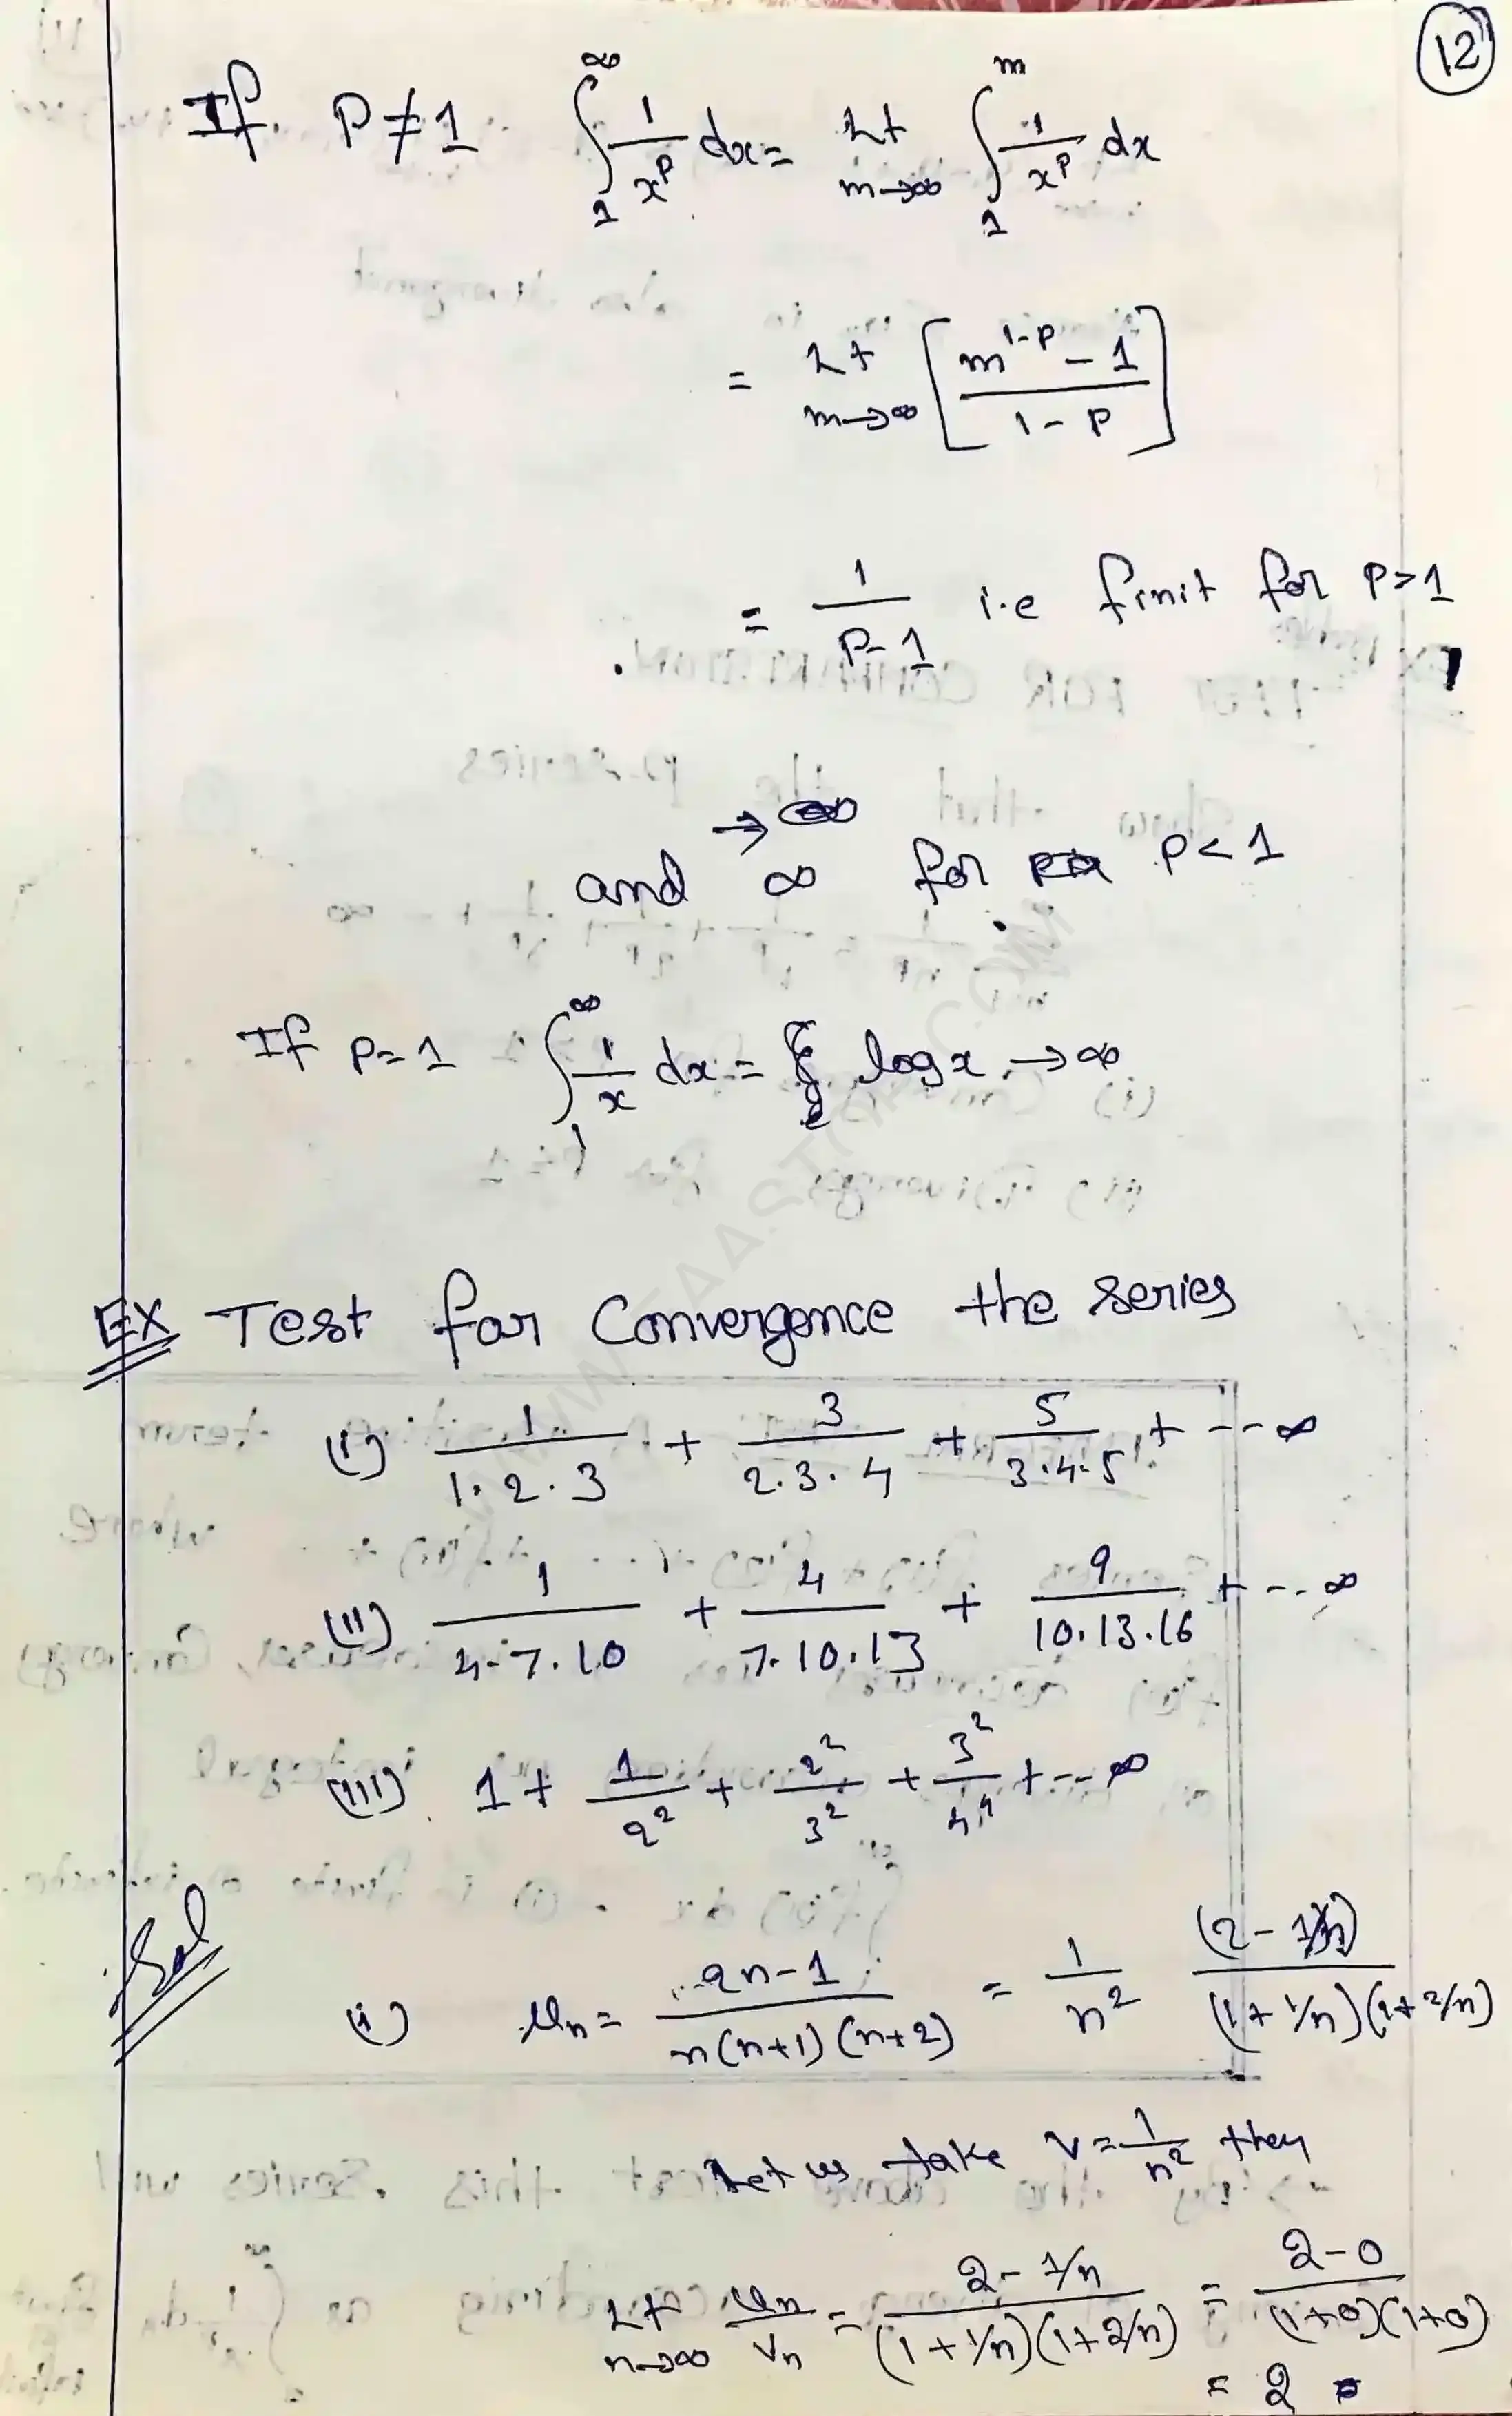 12
If P≠1 ∫₁^∞ 1/x^p dx = Lt m→∞ ∫₁^m 1/x^p dx
= Lt m→∞ [(m^(1-p) - 1)/(1-P)]
= 1/(P-1) i.e finit for P>1
and → ∞ for P<1
If P=1 ∫₁^∞ 1/x dx = log x → ∞
EX Test for Convergence the series
(i) 1/(1.2.3) + 3/(2.3.4) + 5/(3.4.5) + --- ∞
(ii) 1/(4.7.10) + 4/(7.10.13) + 9/(10.13.16) + --- ∞
(iii) 1 + 1/2² + 2²/3² + 3²/4⁴ + --- ∞
Sol
(i) Un = (2n-1)/(n(n+1)(n+2)) = 1/n² (2-1/n)/((1+1/n)(1+2/n))
Let us take V = 1/n² then
Lt n→∞ Un/Vn = (2-1/n)/((1+1/n)(1+2/n)) = (2-0)/((1+0)(1+0))
= 2